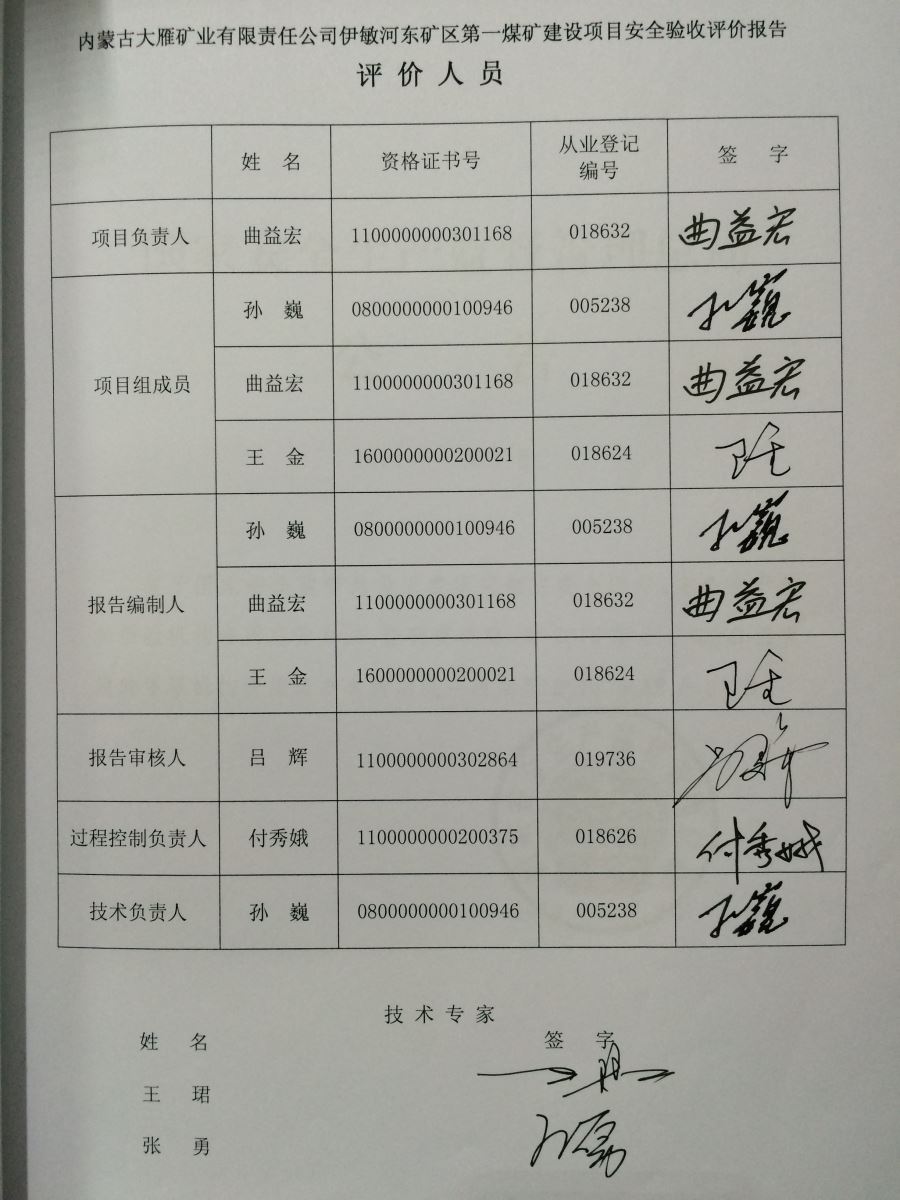 内蒙古大雁矿业有限责任公司伊敏河东矿区第一煤矿建设项目安全验收评价报告
评 价 人 员
姓 名 资格证书号 从业登记编号 签 字
项目负责人 曲益宏 1100000000301168 018632 曲益宏
项目组成员 孙 巍 0800000000100946 005238 孙巍
曲益宏 1100000000301168 018632 曲益宏
王 金 1600000000200021 018624
报告编制人 孙 巍 0800000000100946 005238 孙巍
曲益宏 1100000000301168 018632 曲益宏
王 金 1600000000200021 018624
报告审核人 吕 辉 1100000000302864 019736
过程控制负责人 付秀娥 1100000000200375 018626 付秀娥
技术负责人 孙 巍 0800000000100946 005238 孙巍
技 术 专 家
姓 名 签 字
王 珺
张 勇